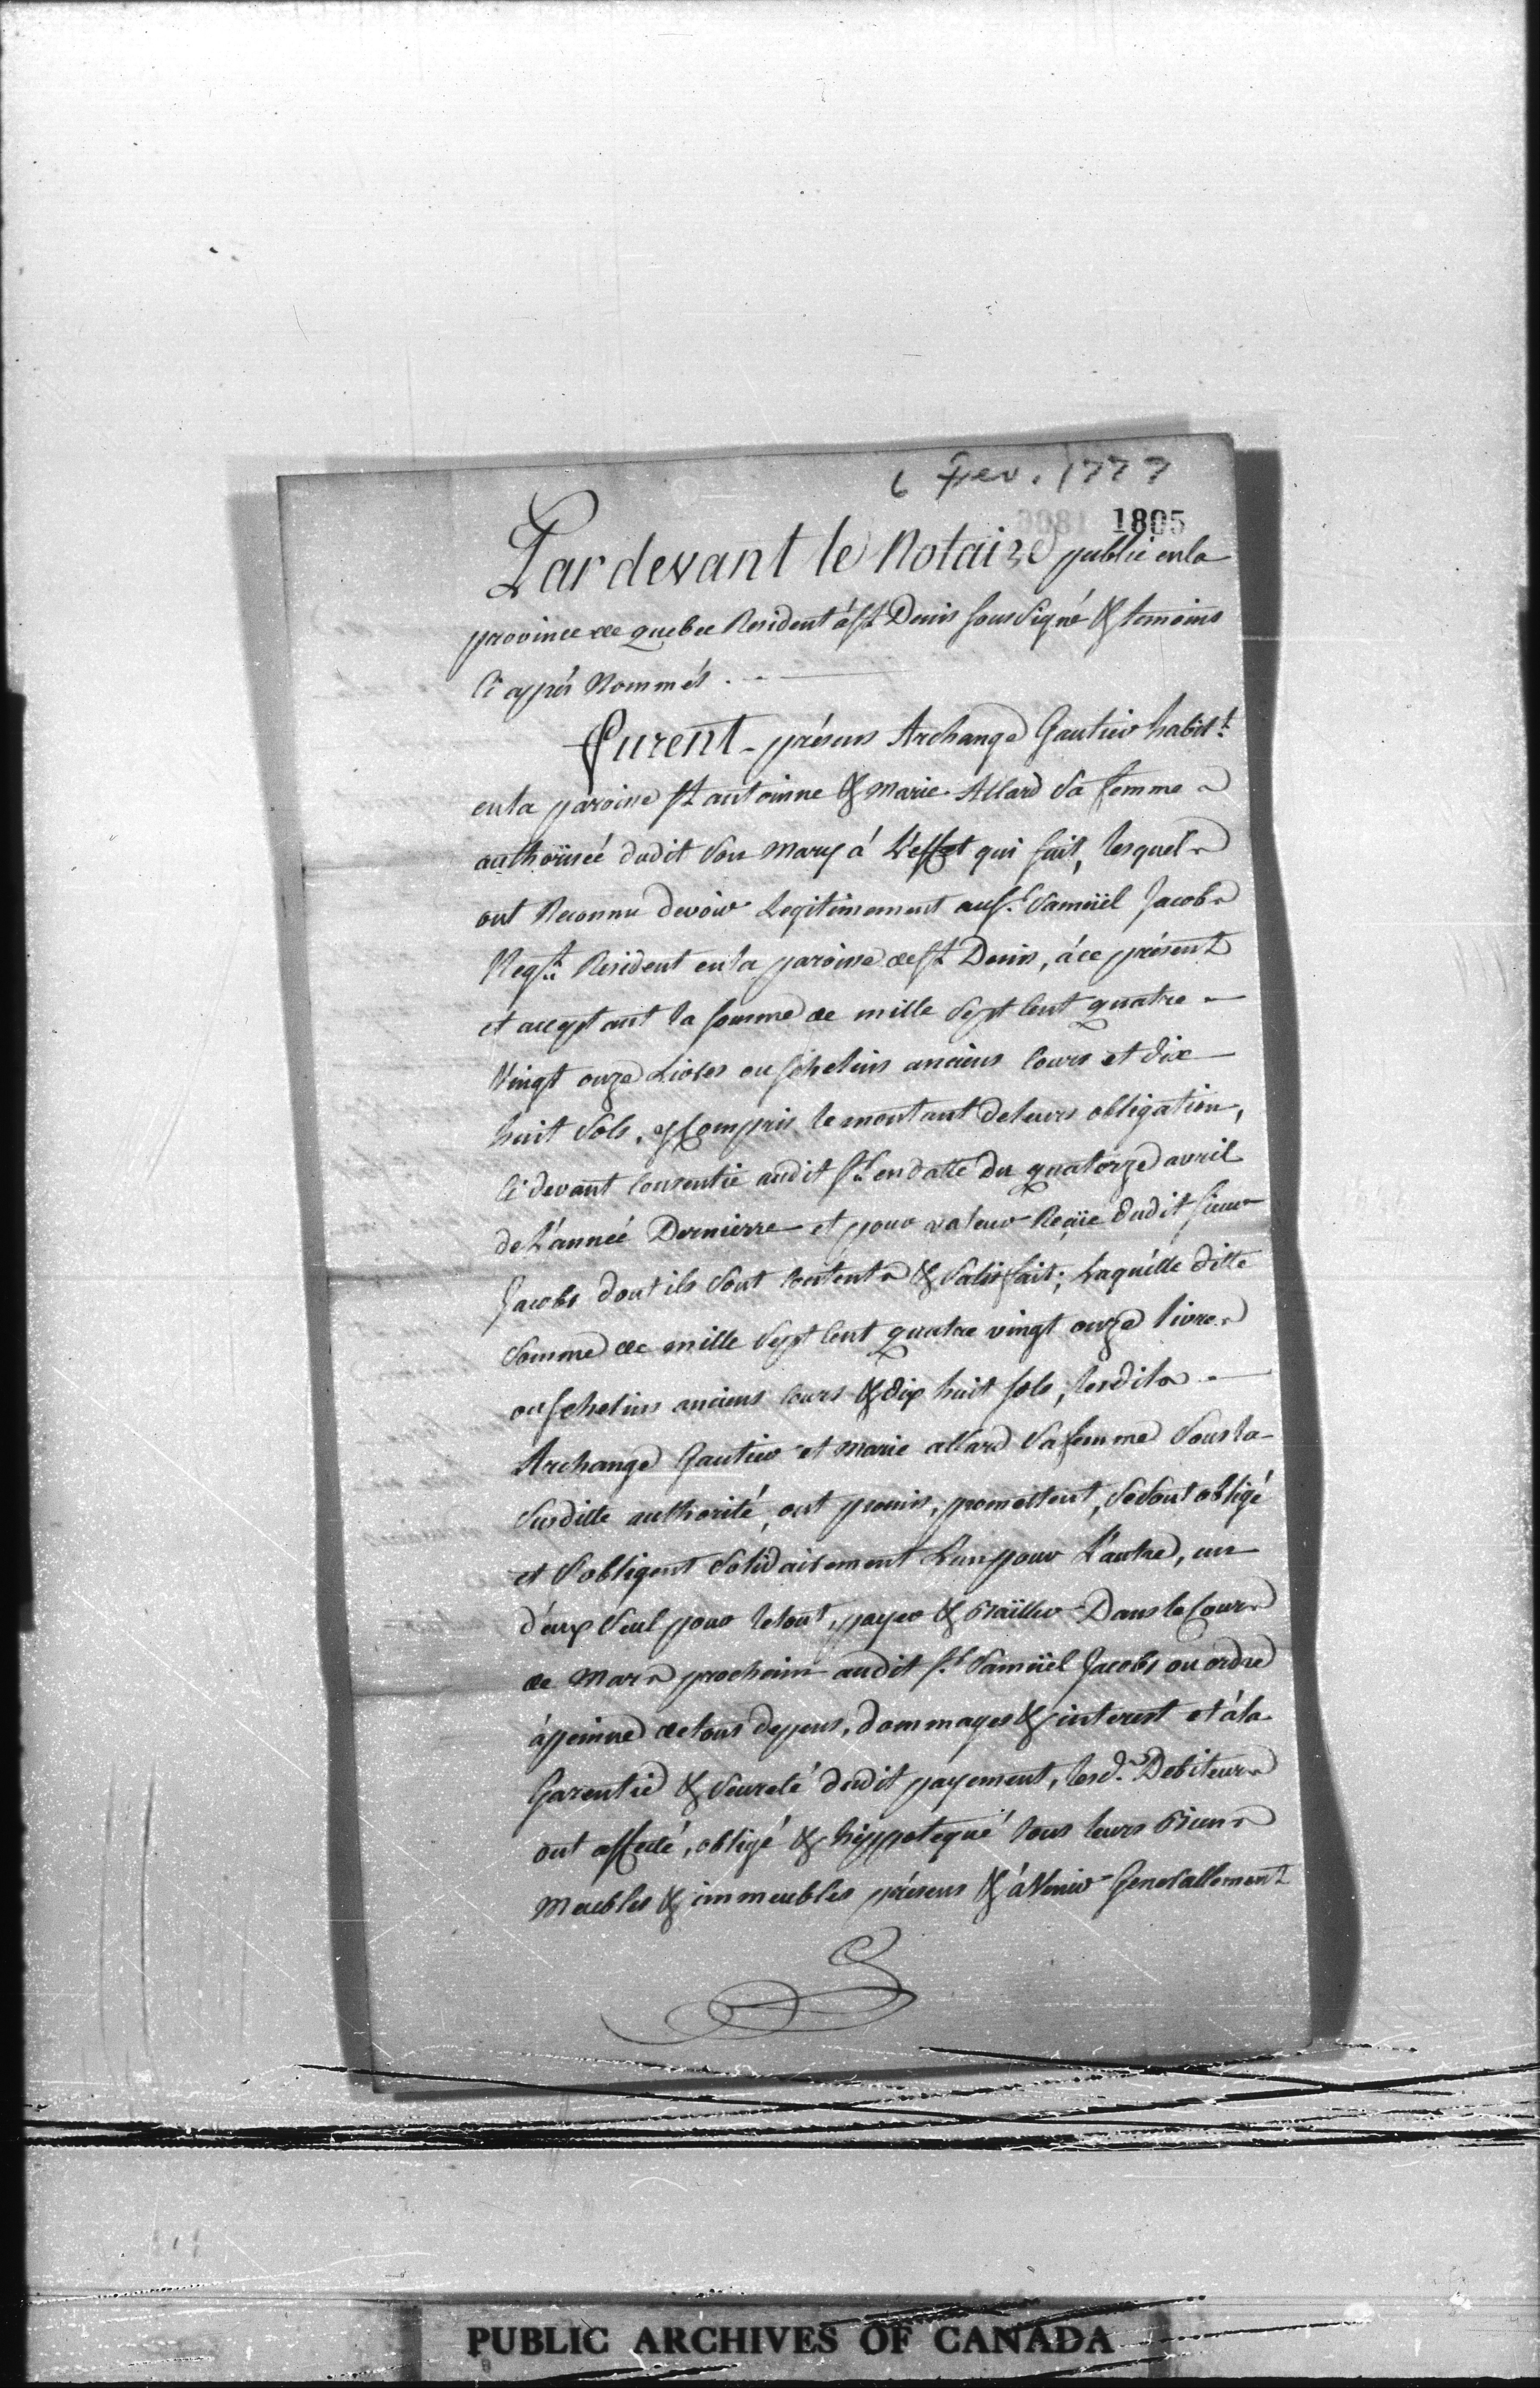 6 Fev. 1777
0081 1805
Pardevant le Notaire public en la
province de quebec Resident à St Denis soussigné & temoins
Ci après Nommés.
Furent présens Archange Gautier habit.t
en la paroisse St antoinne & Marie Allard Sa femme
authorisée dudit Son Mary á L'effet qui suit, lesquels
ont Reconnu devoir Legitimement au S.r Samuël Jacobs
Neg.t Resident en la paroisse de St Denis, á ce présent
et acceptant la somme de mille Sept Cent quatre
Vingt onze Livres ou schelins anciens Cours et dix
huit Sols, y Compris le montant de leurs obligation,
Ci devant Consentie audit S.r en datte du quatorze avril
de L'année Dernierre et pour valeur Reçüe dudit sieur
Jacobs dont ils Sont Contents & Satisfait; Laquélle ditte
Somme de mille Sept Cent quatre vingt onze livres
ou schelins anciens Cours & dix huit sols, lesdits
Archange Gautier et Marie allard Sa femme Sous la
Susditte authorité, ont promis, promettent, Se Sont obligé
et S'obligent Solidairement L'un pour L'autre, un
d'eux Seul pour le tout, payer & Bailler Dans le Cours
de Mars prochain audit S.r Samuël Jacobs ou ordre
à peinne de tous depens, dommages & interest et à la
Garentie & Seureté dudit payement, lesd.s Debiteurs
ont affecté, obligé & hÿppotequé tous leurs Biens
Meubles & immeubles présens & àVenir Generallement
PUBLIC ARCHIVES OF CANADA